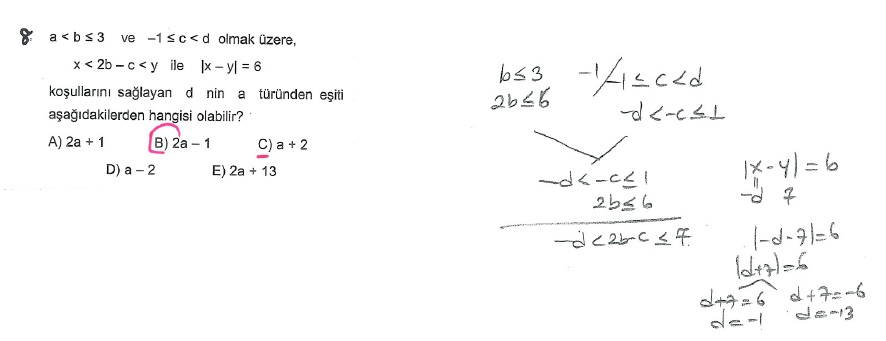 8. a < b ≤ 3 ve –1 ≤ c < d olmak üzere,
x < 2b – c < y ile |x – y| = 6
koşullarını sağlayan d nin a türünden eşiti
aşağıdakilerden hangisi olabilir?
A) 2a + 1 B) 2a – 1 C) a + 2
D) a – 2 E) 2a + 13
b≤3 -1 -1≤c<d
2b≤6 -d<-c≤1
-d<-c≤1
2b≤6
-d<2b-c≤7
|x-y|=6
-d 7
|-d-7|=6
|d+7|=6
d+7=6 d+7=-6
d=-1 d=-13